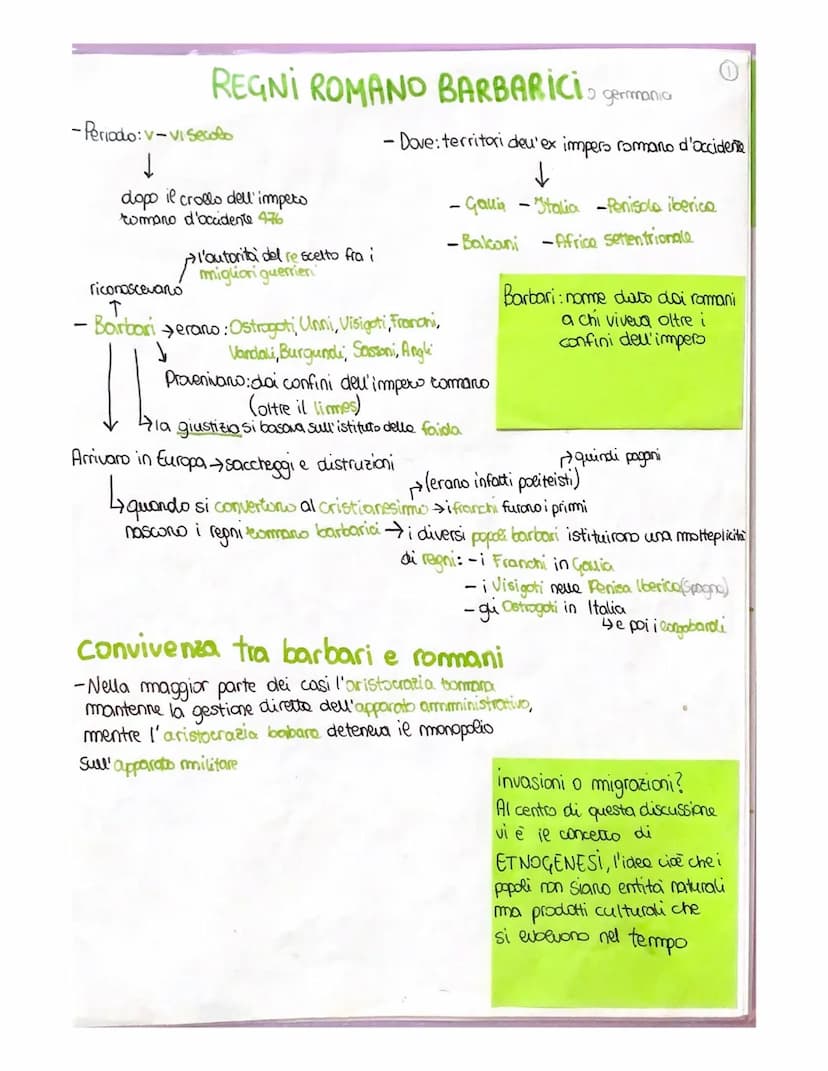 ①
REGNI ROMANO BARBARICI → germania
- Periodo: V-VI secolo
↓
dopo il crollo dell'impero
romano d'occidente 476
- Dove: territori dell'ex impero romano d'occidente
↓
- Gallia - Italia - Penisola iberica
- Balcani - Africa settentrionale
→ l'autorità del re scelto fra i
migliori guerrieri
riconoscevano
↑
- Barbari → erano: Ostrogoti, Unni, Visigoti, Franchi,
Vandali, Burgundi, Sassoni, Angli
Provenivano: dai confini dell'impero romano
(oltre il limes)
↳ la giustizia si basava sull'istituto della faida
Barbari: nome dato dai romani
a chi viveva oltre i
confini dell'impero
Arrivaro in Europa → saccheggi e distruzioni
→ quindi pagani
→ (erano infatti politeisti)
↳ quando si convertono al cristianesimo → i franchi furono i primi
nascono i regni romano barbarici → i diversi popoli barbari istituirono una molteplicità
di regni: - i Franchi in Gallia
- i Visigoti nella Penisa Iberica (Spagna)
- gli Ostrogoti in Italia
↳ e poi i longobardi
Convivenza tra barbari e romani
- Nella maggior parte dei casi l'aristocrazia romana
mantenne la gestione diretta dell'apparato amministrativo,
mentre l'aristocrazia babara deteneva il monopolio
sull'apparato militare
invasioni o migrazioni?
Al centro di questa discussione
vi è il concetto di
ETNOGENESI, l'idea cioè che i
popoli non siano entità naturali
ma prodotti culturali che
si evolvono nel tempo